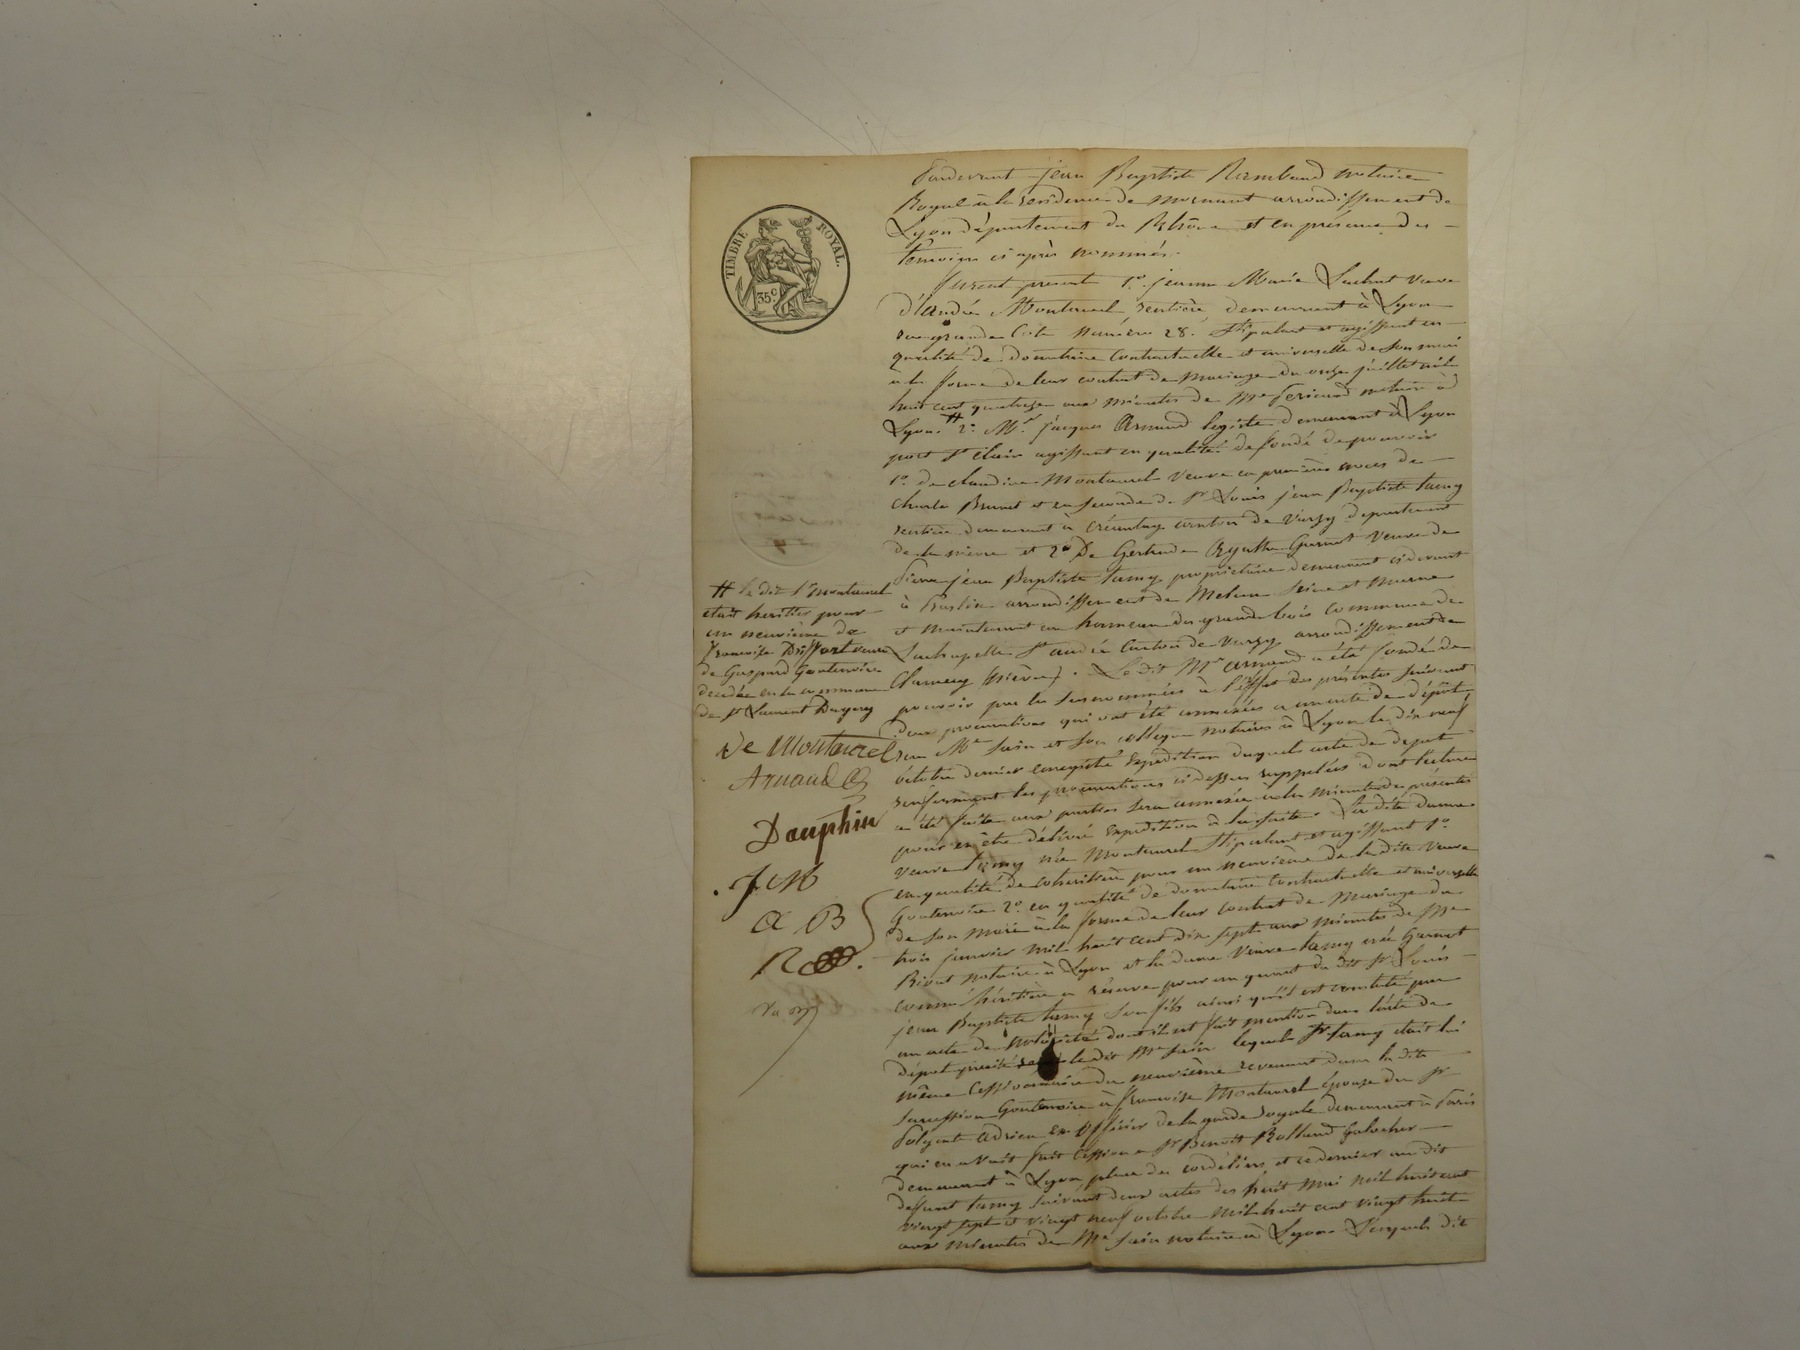 TIMBRE ROYAL.
35c
Pardevant jean Baptiste Rambaud notaire
Royal à la résidence de mornant arrondissement de
Lyon département du Rhône et en présence des
témoins ci après nommés.
furent présents 1.° jeanne Marie Veuve
d'André Montaurel rentière, demeurant à Lyon
rue grande Côte Numéro 28. Stipulant et agissant en
qualité de donataire contractuelle et universelle de son mari
à la forme de leur contrat de mariage du onze juillet mil
huit cent quatorze aux minutes de Me notaire à
Lyon. # 2.° Mr. jacques Arnaud légiste demeurant à Lyon
port St Clair agissant en qualité de fondé de pouvoir
1.° de claudine Montaurel Veuve en premières noces de
charles Brunet et en seconde de Sr Louis jean Baptiste tamy
rentière demeurant à canton de Varzy département
de la nièvre et 2.° De Gertrude Agathe Garnot Veuve de
Pierre jean Baptiste tamy propriétaire demeurant cidevant
à arrondissement de Melun Seine et Marne
et maintenant au hameau du grand bois commune de
Lachapelle St andré Canton de Varzy arrondissement de
Clamecy (Nièvre). Le dit Mr Arnaud a été fondé de
pouvoir par les susnommées à l'effet des présentes suivant
Deux procurations qui ont été annexées à un acte de dépôt
reçu Me Juin et son collègue notaires à Lyon le dix neuf
octobre dernier enregistré Expédition duquel acte de dépôt
renfermant les procurations cidessus rappelées dont lecture
a été faite aux parties sera annexée à la minute des présentes
pour en être délivré expédition à la suite. La dite dame
veuve tamy née Montaurel Stipulant et agissant 1.°
en qualité de cohéritière pour un neuvième de la dite Veuve
Goutenoire 2.° en qualité de donataire contractuelle et universelle
de son mari à la forme de leur contrat de Mariage du
trois janvier mil huit cent dix sept aux minutes de Me
notaire à Lyon et la dame Veuve tamy née Garnot
comme héritière à réserve pour un quart du dit Sr Louis
jean Baptiste tamy son fils ainsi qu'il est constaté par
un acte de notoriété dont il est fait mention dans l'acte de
dépôt précité le dit Me Juin lequel Sr tamy était lui
même Cessionnaire du neuvième revenant dans la dite
succession Goutenoire à françoise Montaurel épouse du Sr
Adrien ex officier de la garde royale demeurant à Paris
qui en avait fait Cession à Sr Benoit Rolland
demeurant à Lyon place des cordeliers, et ce dernier au dit
défunt tamy suivant deux actes des huit mai mil huit cent
vingt sept et vingt neuf octobre mil huit cent vingt huit
aux minutes de Me Juin notaire à Lyon. Lesquels dit
# le dit Sr Montaurel
était héritier pour
un neuvième de
françoise veuve
de Gaspard Goutenoire
décédée en la commune
de St Laurent Dagny
Ve Montaurel
Arnaud
Dauphin
J M
A B
R